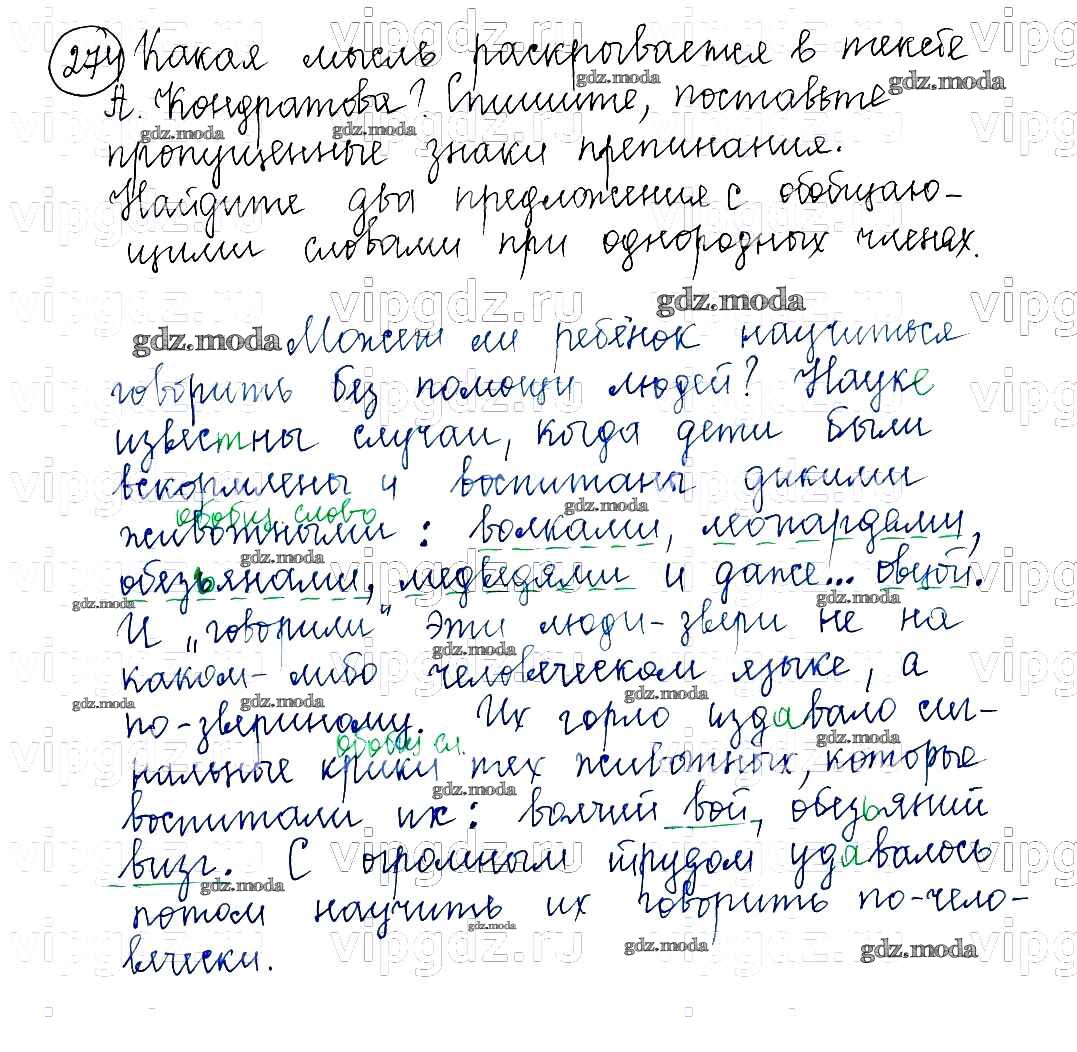 274 Какая мысль раскрывается в тексте
А. Кондратова? Спишите, поставьте
пропущенные знаки препинания.
Найдите два предложения с обобщаю-
щими словами при однородных членах.
Может ли ребёнок научиться
говорить без помощи людей? Науке
известны случаи, когда дети были
вскормлены и воспитаны дикими
обобщ слово
животными: волками, леопардами,
обезьянами, медведями и даже... овцой.
И „говорили" эти люди-звери не на
каком-либо человеческом языке, а
по-звериному. Их горло издавало сиг-
обобщ сл.
нальные крики тех животных, которые
воспитали их: волчий вой, обезьяний
визг. С огромным трудом удавалось
потом научить их говорить по-чело-
вечески.
gdz.moda
vipgdz.ru